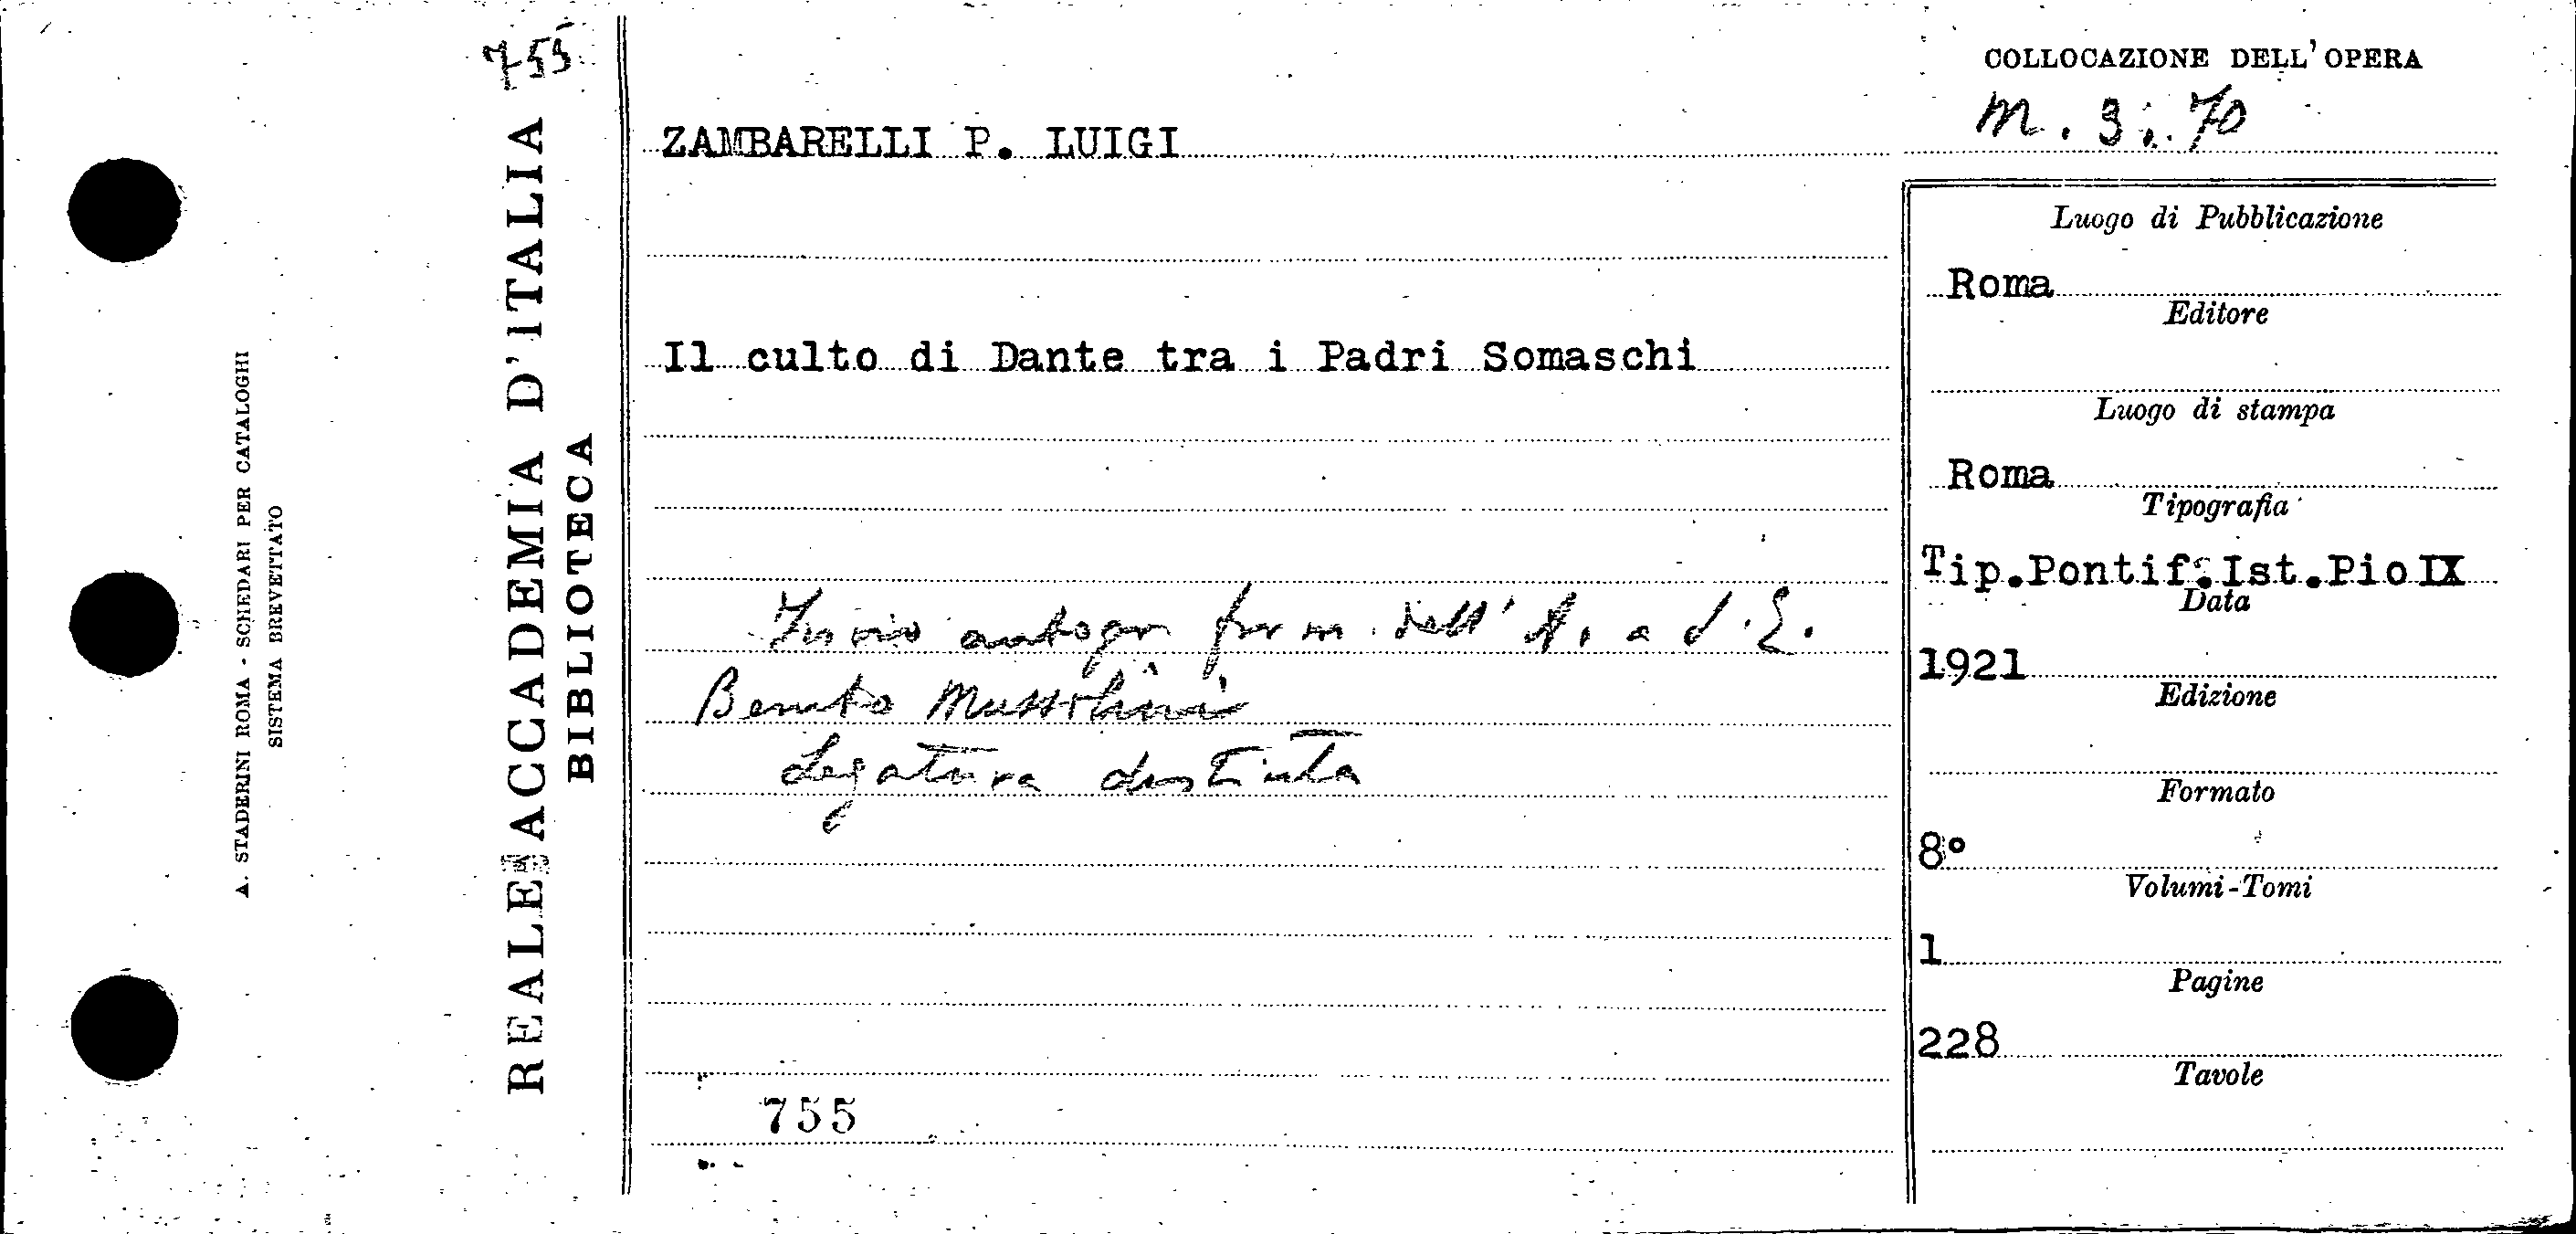 755
REALE ACCADEMIA D'ITALIA
BIBLIOTECA
A. STADERINI ROMA - SCHEDARI PER CATALOGHI
SISTEMA BREVETTATO
ZAMBARELLI P. LUIGI
Il culto di Dante tra i Padri Somaschi
Invio autogr firm. dell'A. a S.E.
Benito Mussolini
Legatura distinta
755
COLLOCAZIONE DELL'OPERA
M. 3. 70
Luogo di Pubblicazione
Roma
Editore
Luogo di stampa
Roma
Tipografia
Tip.Pontif.Ist.Pio IX
Data
1921
Edizione
Formato
8°
Volumi-Tomi
1
Pagine
228
Tavole